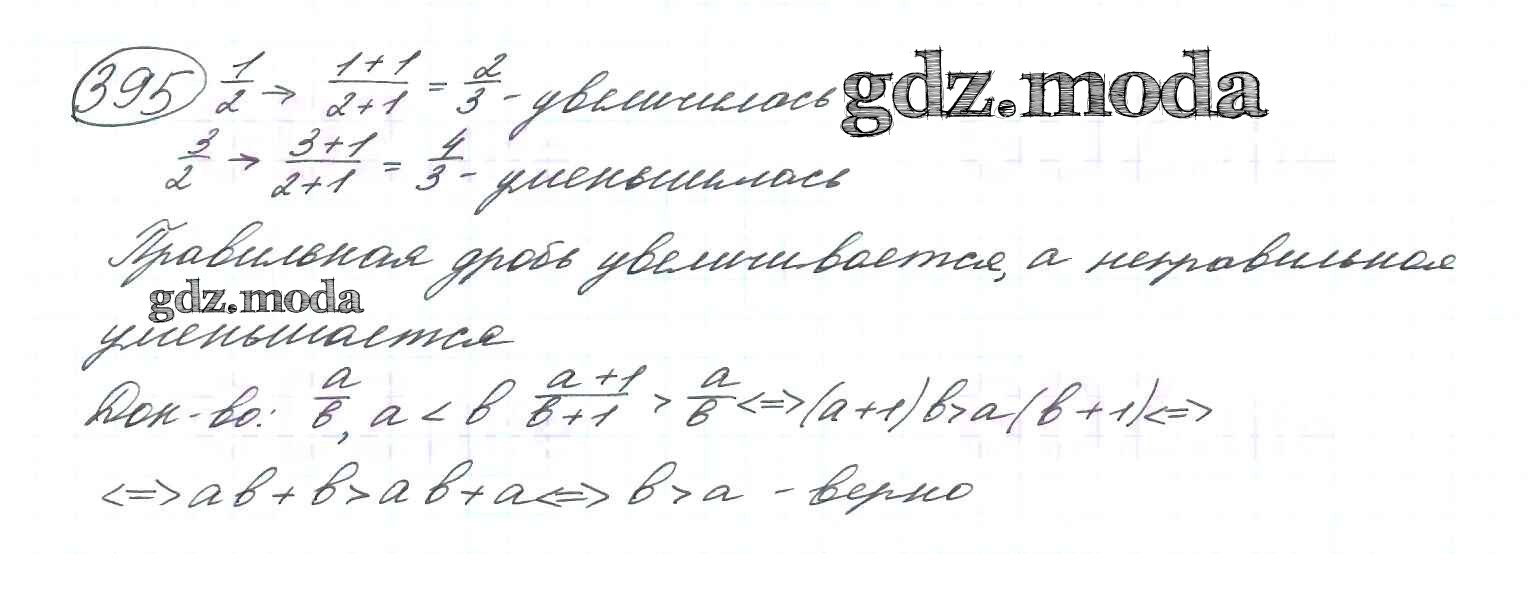 395 1/2 → (1+1)/(2+1) = 2/3 - увеличилась gdz.moda
3/2 → (3+1)/(2+1) = 4/3 - уменьшилась
Правильная дробь увеличивается, а неправильная
gdz.moda
уменьшается
Док-во: a/b, a < b (a+1)/(b+1) > a/b <=> (a+1)b > a(b+1) <=>
<=> ab + b > ab + a <=> b > a - верно